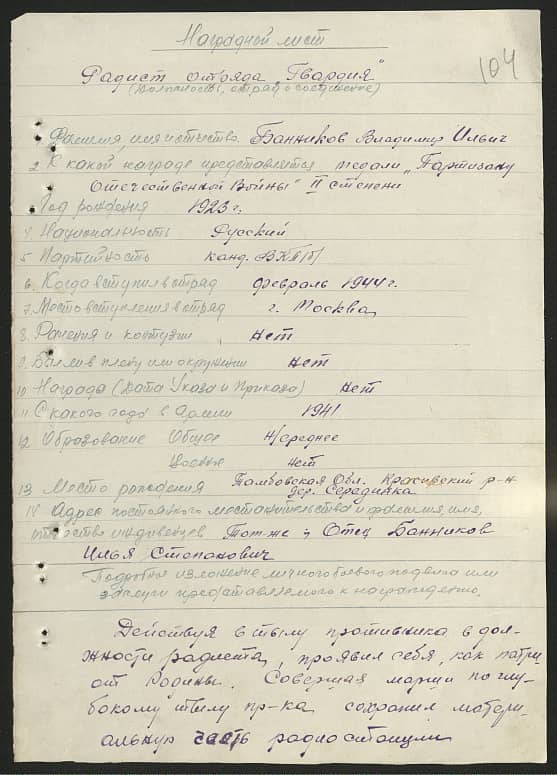 Наградной лист
104
Радист отряда "Гвардия"
(должность, отряд и соединение)
Фамилия, имя и отчество Банников Владимир Ильич
2 К какой награде представляется медали "Партизану
Отечественной Войны" II степени
Год рождения 1923 г.
4. Национальность Русский
5 Партийность канд. ВКП/б/
6. Когда вступил в отряд февраль 1944 г.
7. Место вступления в отряд г. Москва
8. Ранения и контузии Нет
9. Был ли в плену или окружении Нет
10 Награда (Дата Указа и Приказа) Нет
11 С какого года в Армии 1941
12 Образование Общее н/среднее
Военное нет
13 Место рождения Тамбовская Обл. Красивский р-н
дер. Серединка
14 Адрес постоянного местожительства и фамилия, имя,
отчество иждивенцев Тот-же, Отец Банников
Илья Степанович
Подробное изложение личного боевого подвига или
заслуги представляемого к награждению.
Действуя в тылу противника в дол-
жности радиста, проявил себя, как патри
от Родины. Совершая марши по глу-
бокому тылу пр-ка сохранил матери
альную часть радиостанции